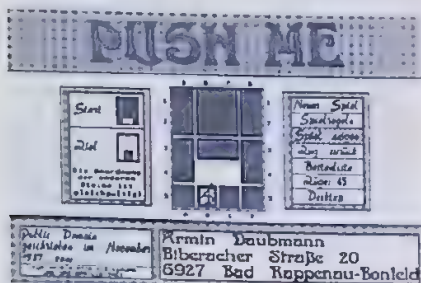 PUSH ME
Start
Ziel
Die Anordnung
der anderen
Steine ist
gleichgültig!
A B C D
1 1
2 2
3 3
4 4
5 5
A B C D
Neues Spiel
Spielregeln
Spiel
Zug zurück
Bestenliste
Züge: 45
Desktop
Public Domain
geschrieben im November
1987 von
Armin Daubmann
Biberacher Straße 20
6927 Bad Rappenau-Bonfeld